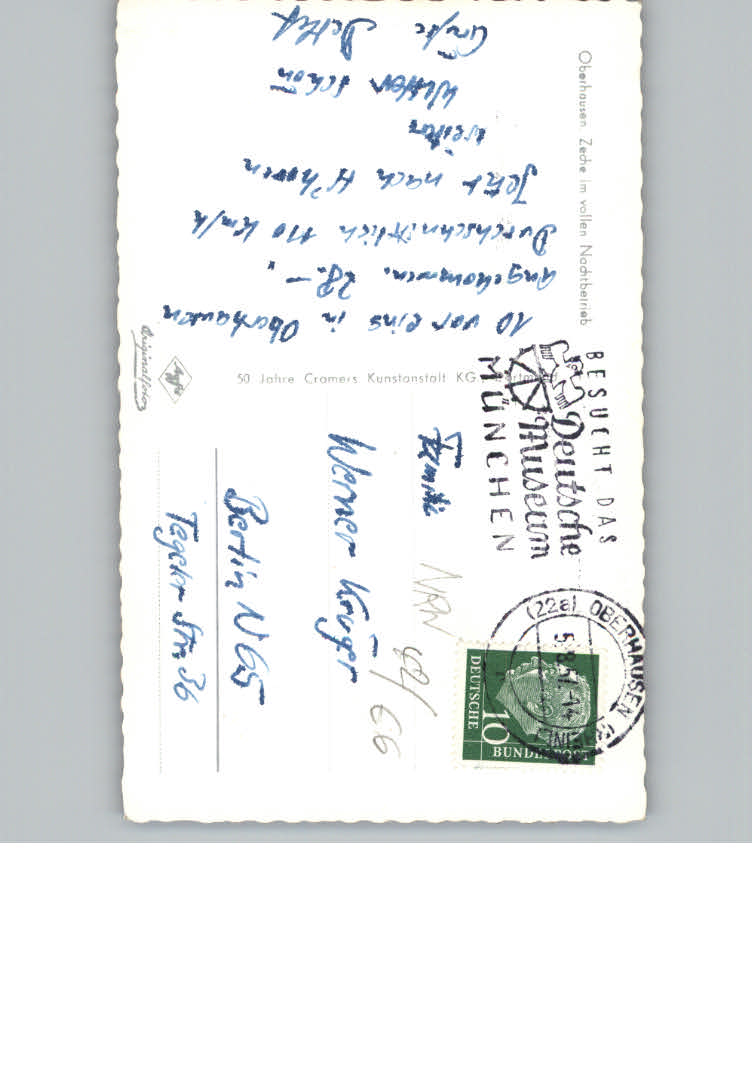 Oberhausen. Zeche im vollen Nachtbetrieb
10 vor eins in Oberhausen
angekommen. 28.–.
Durchschnittlich 110 km/h
Jetzt nach
weiter
Wetter schön
Grüße Detlef
50 Jahre Cramers Kunstanstalt KG., Dortmund
Agfa
Originalfoto
BESUCHT DAS
Deutsche
Museum
MÜNCHEN
(22a) OBERHAUSEN
5.8.57-14
DEUTSCHE
BUNDESPOST
10
Familie
Werner Krüger
Berlin N 65
Tegeler Str. 36
NRW
42/66